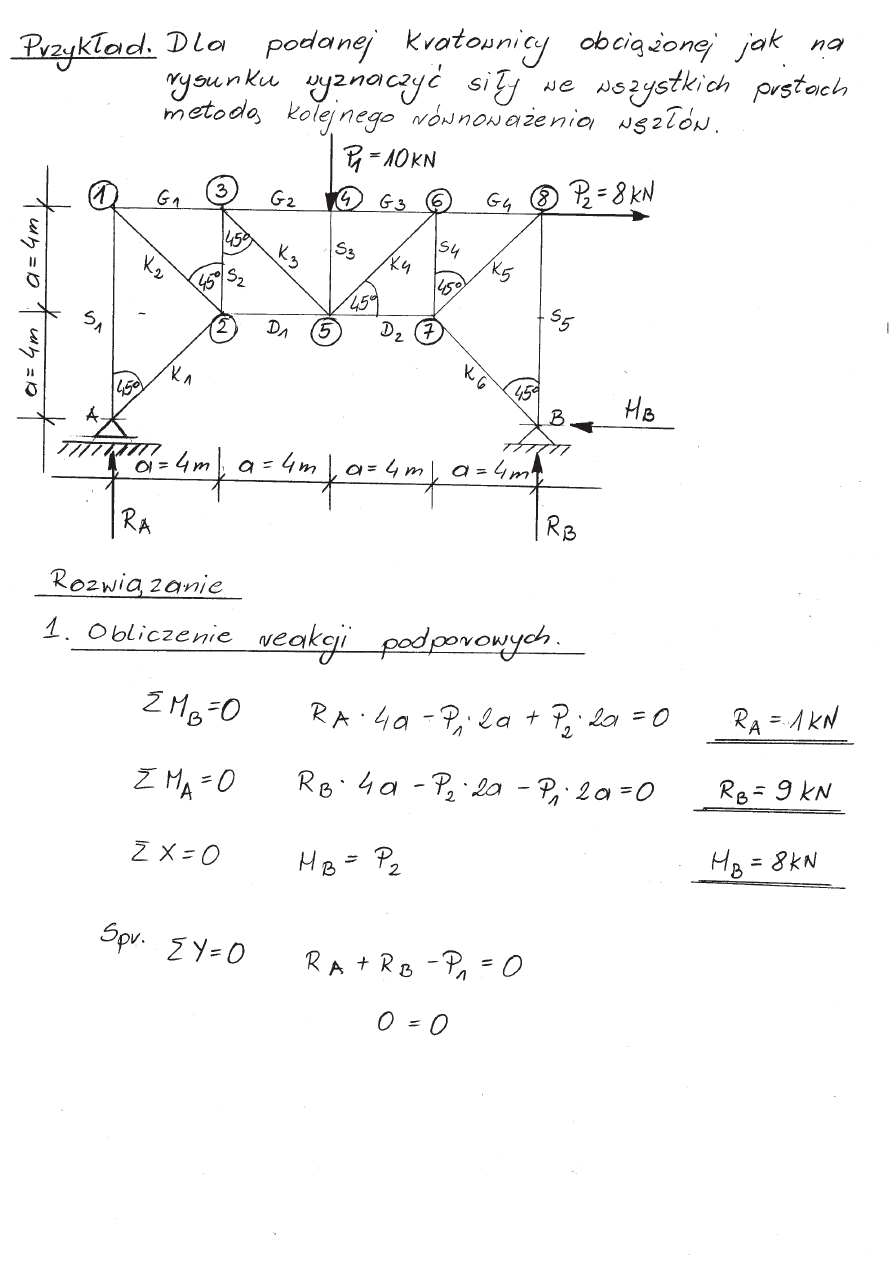 Przykład. Dla podanej kratownicy obciążonej jak na
rysunku wyznaczyć siły we wszystkich prętach
metodą kolejnego równoważenia węzłów.
P1 = 10 KN
1 G1 3 G2 4 G3 6 G4 8 P2 = 8 KN
a = 4m
K2 45° S2 45° K3 S3 K4 45° S4 45° K5
S1 2 D1 5 D2 7 S5
a = 4m
45° K1 K6 45°
A B HB
a = 4m a = 4m a = 4m a = 4m
RA RB
Rozwiązanie
1. Obliczenie reakcji podporowych.
ΣMB = 0 RA · 4a - P1 · 2a + P2 · 2a = 0 RA = 1 KN
ΣMA = 0 RB · 4a - P2 · 2a - P1 · 2a = 0 RB = 9 KN
ΣX = 0 HB = P2 HB = 8 KN
Spr. ΣY = 0 RA + RB - P1 = 0
0 = 0